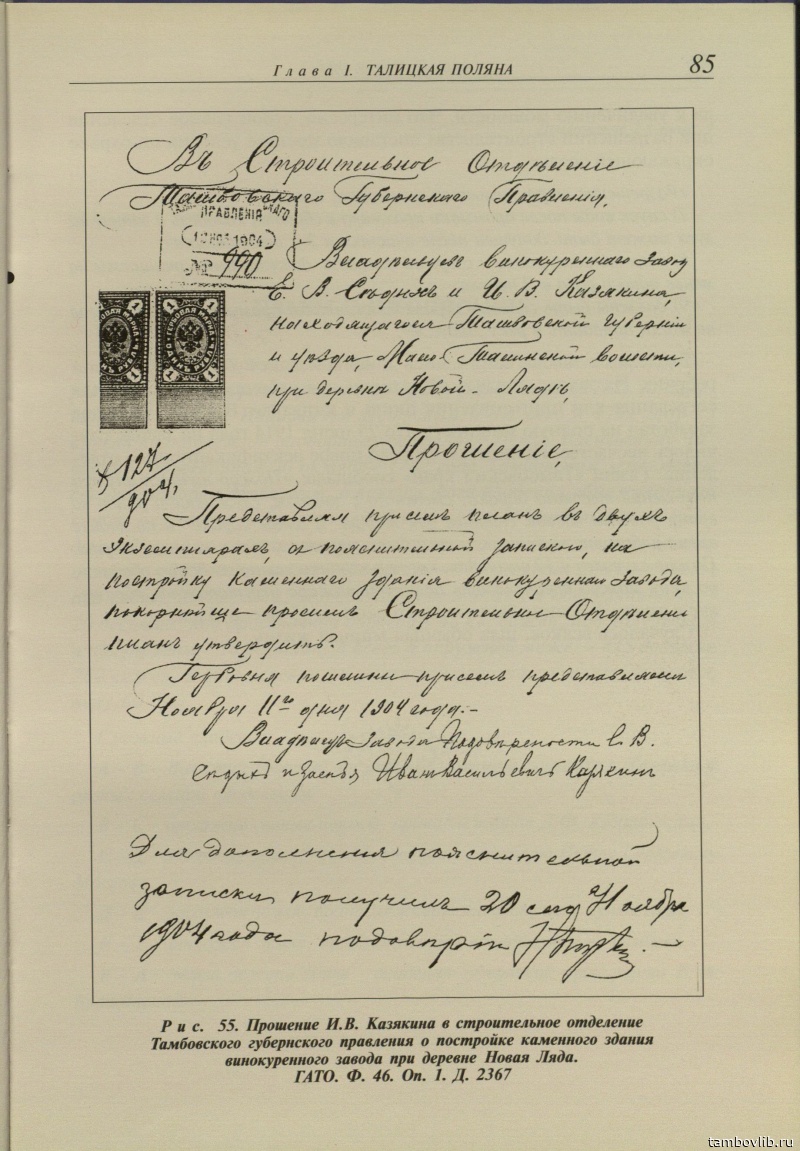 Глава I. ТАЛИЦКАЯ ПОЛЯНА
85
Въ Строительное Отдѣленіе
Тамбовскаго Губернскаго Правленія.
ПРАВЛЕНІЯ
1904
№ 990
Владѣльцевъ винокуреннаго завода
Е. В. и И. В. Казякина,
находящагося Тамбовской губерніи
и уѣзда, Мало-Талинской волости,
при деревнѣ Новой-Лядѣ,
Прошеніе,
127
904
Представляя при семъ планъ въ двухъ
экземплярахъ, съ пояснительной запиской, на
постройку каменнаго зданія винокуреннаго завода,
покорнѣйше просимъ Строительное Отдѣленіе
планъ утвердить.
Гербовыя пошлины при семъ представляются
Ноября 11го дня 1904 года.-
Владѣлецъ завода По довѣренности Е. В.
и за себя Иванъ Васильевичъ Казякинъ
Для дополненія пояснительной
записки получилъ 20 сего Ноября
1904 года по довѣрію
Рис. 55. Прошение И.В. Казякина в строительное отделение
Тамбовского губернского правления о постройке каменного здания
винокуренного завода при деревне Новая Ляда.
ГАТО. Ф. 46. Оп. 1. Д. 2367
tambovlib.ru